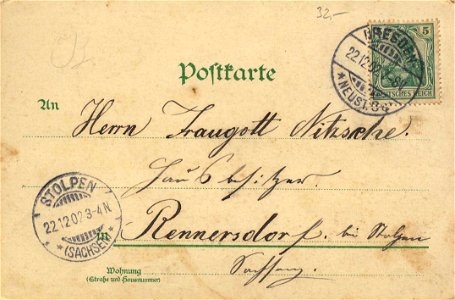 32.-
DRESDEN-
22.12.02
*NEUST.
5
DEUTSCHES REICH
Postkarte
An
Herrn Traugott Nitzsche.
Hausbesitzer.
STOLPEN
22.12.02.3-4N.
*(SACHSEN)*
in Rennersdorf. bei Stolpen
Sachsen.
Wohnung
(Straße und Hausnummer)